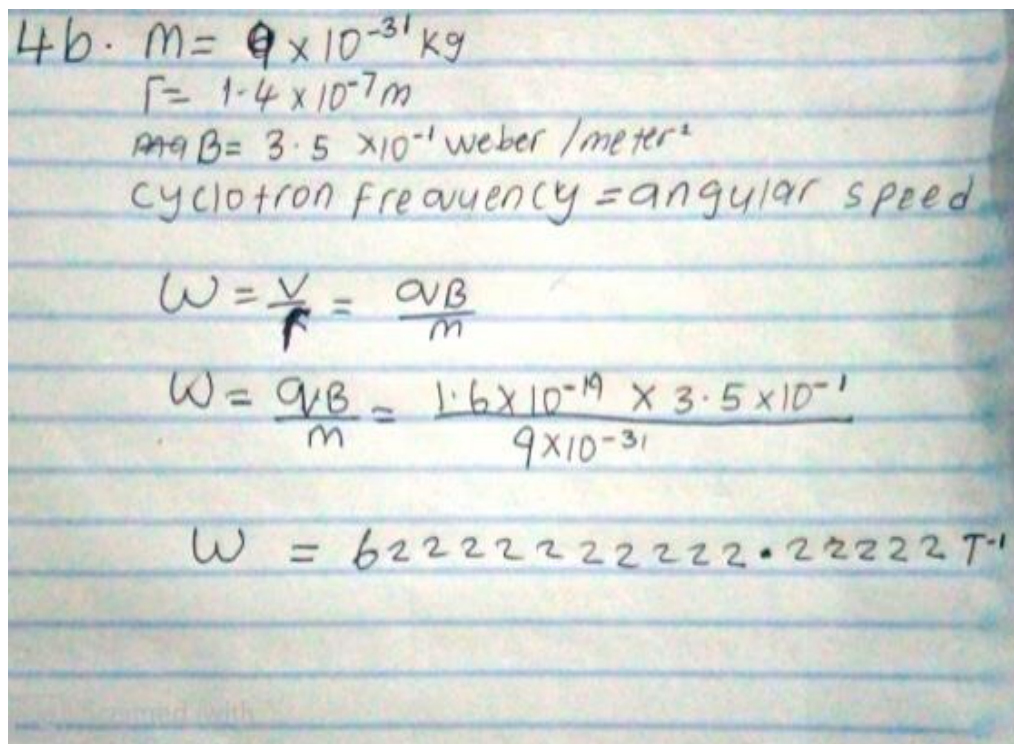 4b. m = 9 x 10^-31 kg
r = 1.4 x 10^-7 m
B = 3.5 x10^-1 weber /meter²
cyclotron frequency = angular speed
W = V/r = qB/m
W = qB/m = 1.6x10^-19 x 3.5x10^-1 / 9x10^-31
W = 62222222222.22222 T^-1
Scanned with